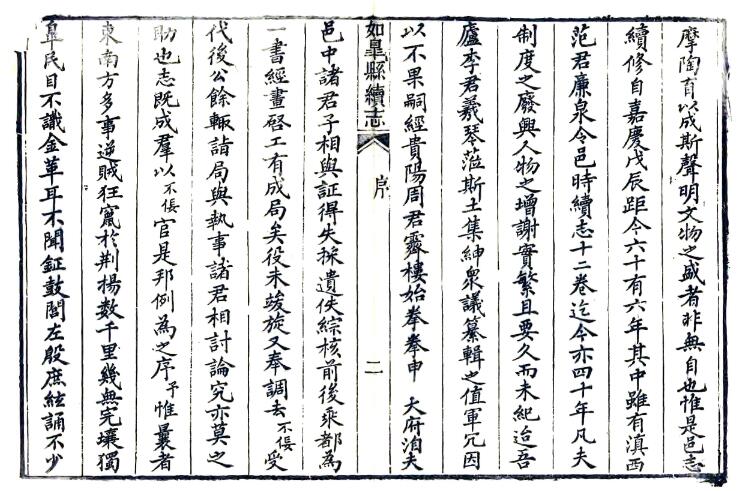 摩陶育以成斯聲明文物之盛者非無自也惟是邑志
續修自嘉慶戊辰距今六十有六年其中雖有滇西
范君廉泉令邑時續志十二卷迄今亦四十年凡夫
制度之廢興人物之增謝實繁且要久而未紀迨吾
廬李君羲琴蒞斯土集紳衆議纂輯之值軍冗因
以不果嗣經貴陽周君霽樓始拳拳申 大府洎夫
如臯縣續志 序 二
邑中諸君子相與証得失採遺佚綜核前後乘都為
一書經畫啓工有成局矣役未竣旋又奉調去不佞受
代後公餘輙詣局與執事諸君相討論究亦莫之
助也志既成羣以不佞官是邦例為之序予惟曩者
東南方多事逆賊狂竄於荆揚数千里幾無完壤獨
臯民目不識金革耳不聞鉦鼓閭左殷庶絃誦不少